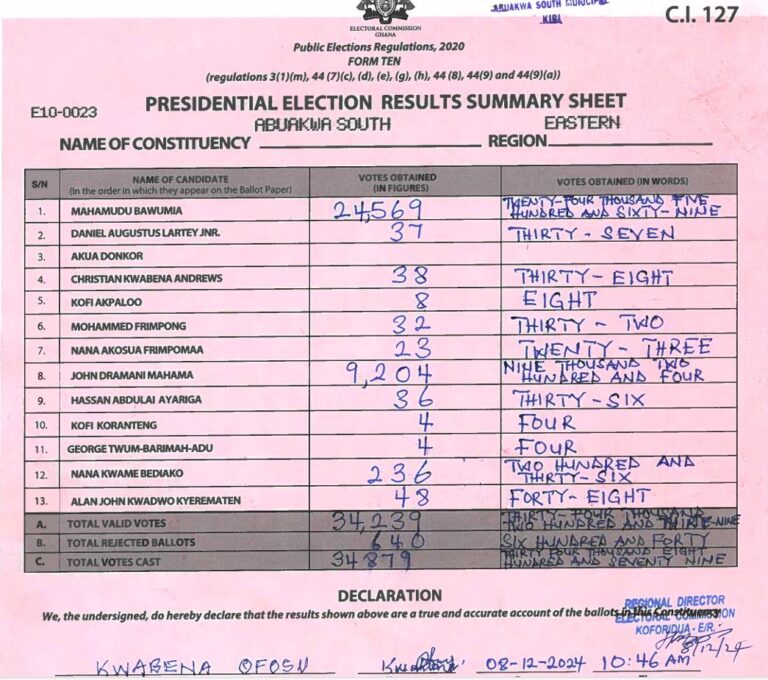 ABUAKWA SOUTH MUNICIPAL
KIBI
C.I. 127
ELECTORAL COMMISSION
GHANA
Public Elections Regulations, 2020
FORM TEN
(regulations 3(1)(m), 44(7)(c), (d), (e), (g), (h), 44 (8), 44(9) and 44(9)(a))
E10-0023
PRESIDENTIAL ELECTION RESULTS SUMMARY SHEET
NAME OF CONSTITUENCY ABUAKWA SOUTH REGION EASTERN
S/N NAME OF CANDIDATE (In the order in which they appear on the Ballot Paper) VOTES OBTAINED (IN FIGURES) VOTES OBTAINED (IN WORDS)
1. MAHAMUDU BAWUMIA 24,569 TWENTY-FOUR THOUSAND FIVE HUNDRED AND SIXTY-NINE
2. DANIEL AUGUSTUS LARTEY JNR. 37 THIRTY-SEVEN
3. AKUA DONKOR
4. CHRISTIAN KWABENA ANDREWS 38 THIRTY-EIGHT
5. KOFI AKPALOO 8 EIGHT
6. MOHAMMED FRIMPONG 32 THIRTY-TWO
7. NANA AKOSUA FRIMPOMAA 23 TWENTY-THREE
8. JOHN DRAMANI MAHAMA 9,204 NINE THOUSAND TWO HUNDRED AND FOUR
9. HASSAN ABDULAI AYARIGA 36 THIRTY-SIX
10. KOFI KORANTENG 4 FOUR
11. GEORGE TWUM-BARIMAH-ADU 4 FOUR
12. NANA KWAME BEDIAKO 236 TWO HUNDRED AND THIRTY-SIX
13. ALAN JOHN KWADWO KYEREMATEN 48 FORTY-EIGHT
A. TOTAL VALID VOTES 34,239 THIRTY-FOUR THOUSAND TWO HUNDRED AND THIRTE-NINE
B. TOTAL REJECTED BALLOTS 640 SIX HUNDRED AND FORTY
C. TOTAL VOTES CAST 34879 THIRTY FOUR THOUSAND EIGHT HUNDRED AND SEVENTY NINE
DECLARATION
We, the undersigned, do hereby declare that the results shown above are a true and accurate account of the ballots in this Constituency
REGIONAL DIRECTOR
ELECTORAL COMMISSION
KOFORIDUA - E/R.
8/12/24
KWABENA OFOSU 08-12-2024 10:46 AM